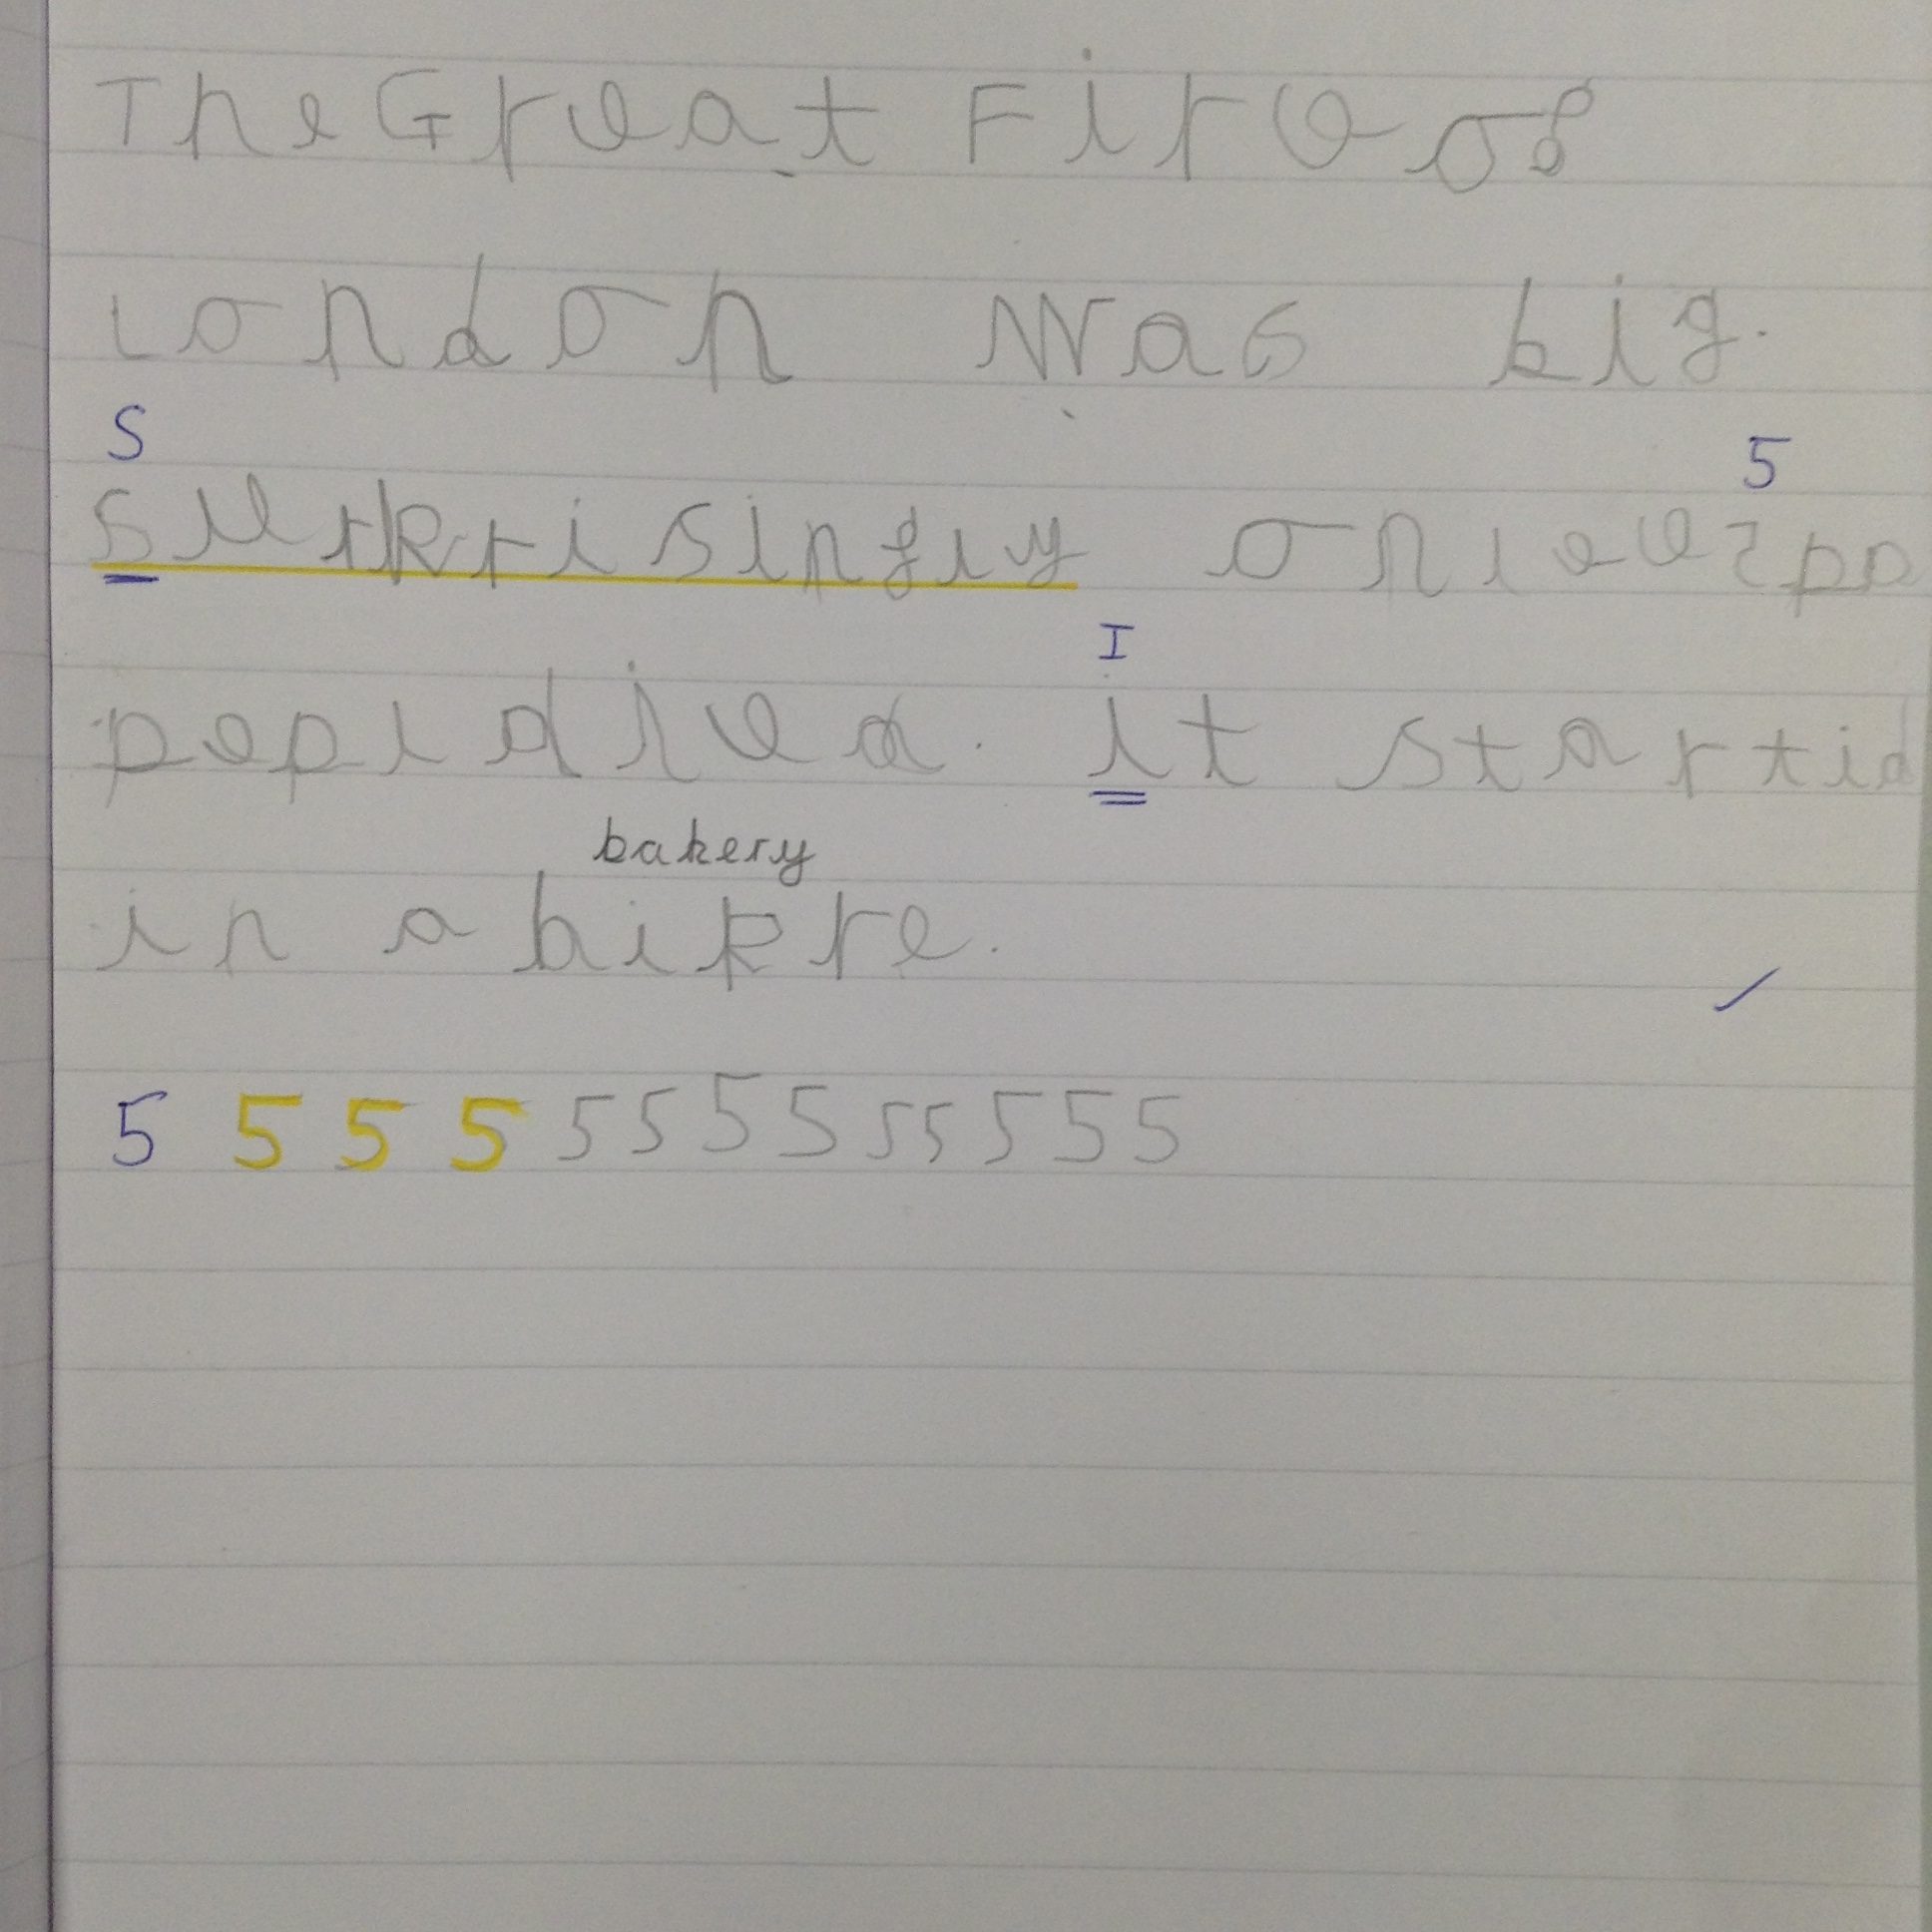 The Great Fire of
London was big.
S 5
surkrisingly onlee 5 pa
pepl died. it startid
I
bakery
in a bikre.
5 5 5 5 5 5 5 5 5 5 5 5 5